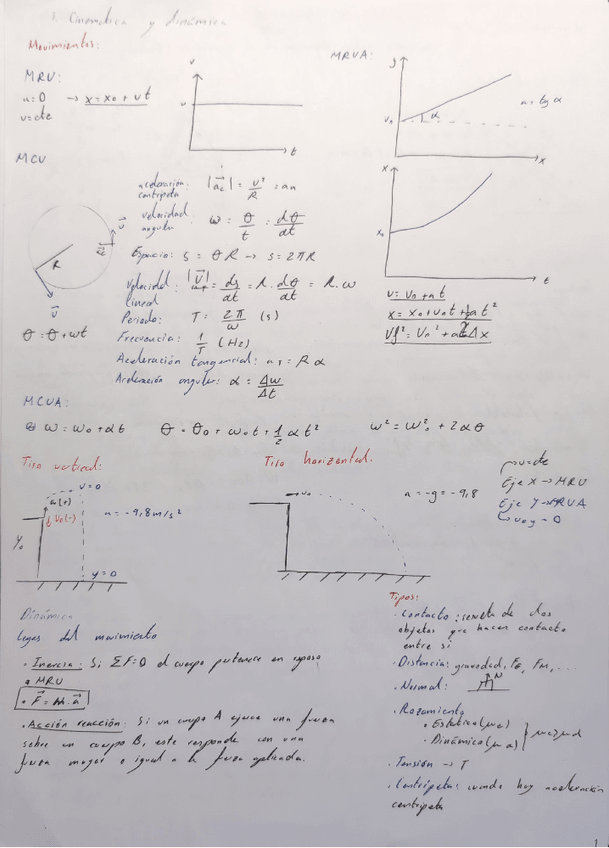 1. Cinemática y dinámica
Movimientos:
MRU:
a=0 → x=x₀+vt
v=cte
v
v
t
MRVA:
v₀
α
a = tg α
x
x
x₀
t
v = v₀ + at
x = x₀ + v₀t + ½at²
MCU
R
v⃗
v⃗
θ = θ + ωt
aceleración centrípeta: |a⃗c| = v²/R = an
velocidad angular ω = θ/t = dθ/dt
Espacio: s = θR → s = 2πR
Velocidad lineal = ds/dt = R · dθ/dt = R · ω
Periodo: T = 2π/ω (s)
Frecuencia: 1/T (Hz)
Aceleración tangencial: a_T = R α
Aceleración angular: α = Δω/Δt
MCUA:
ω = ω₀ + αt θ = θ₀ + ω₀t + ½ αt² ω² = ω₀² + 2αθ
Tiro vertical:
v = 0
a = -9,8 m/s²
Y₀
y = 0
Tiro horizontal.
v₀
a = -g = -9,8
v=cte
Eje X → MRU
Eje Y → MRVA
v₀y = 0
Dinámica
Leyes del movimiento
· Inercia: Si ΣF=0 el cuerpo pertenece en reposo
o MRU
· F⃗ = m · a⃗
· Acción reacción: Si un cuerpo A ejerce una fuerza
sobre un cuerpo B, este responde con una
fuerza mayor o igual a la fuerza aplicada.
Tipos:
· Contacto: de dos
objetos que hacen contacto
entre sí
· Distancia: gravedad, Fe, Fm, ...
· Normal: N
· Rozamiento
• Estático (μe)
• Dinámico (μd)
· Tensión → T
· Centrípeta: cuando hay aceleración
centrípeta
1